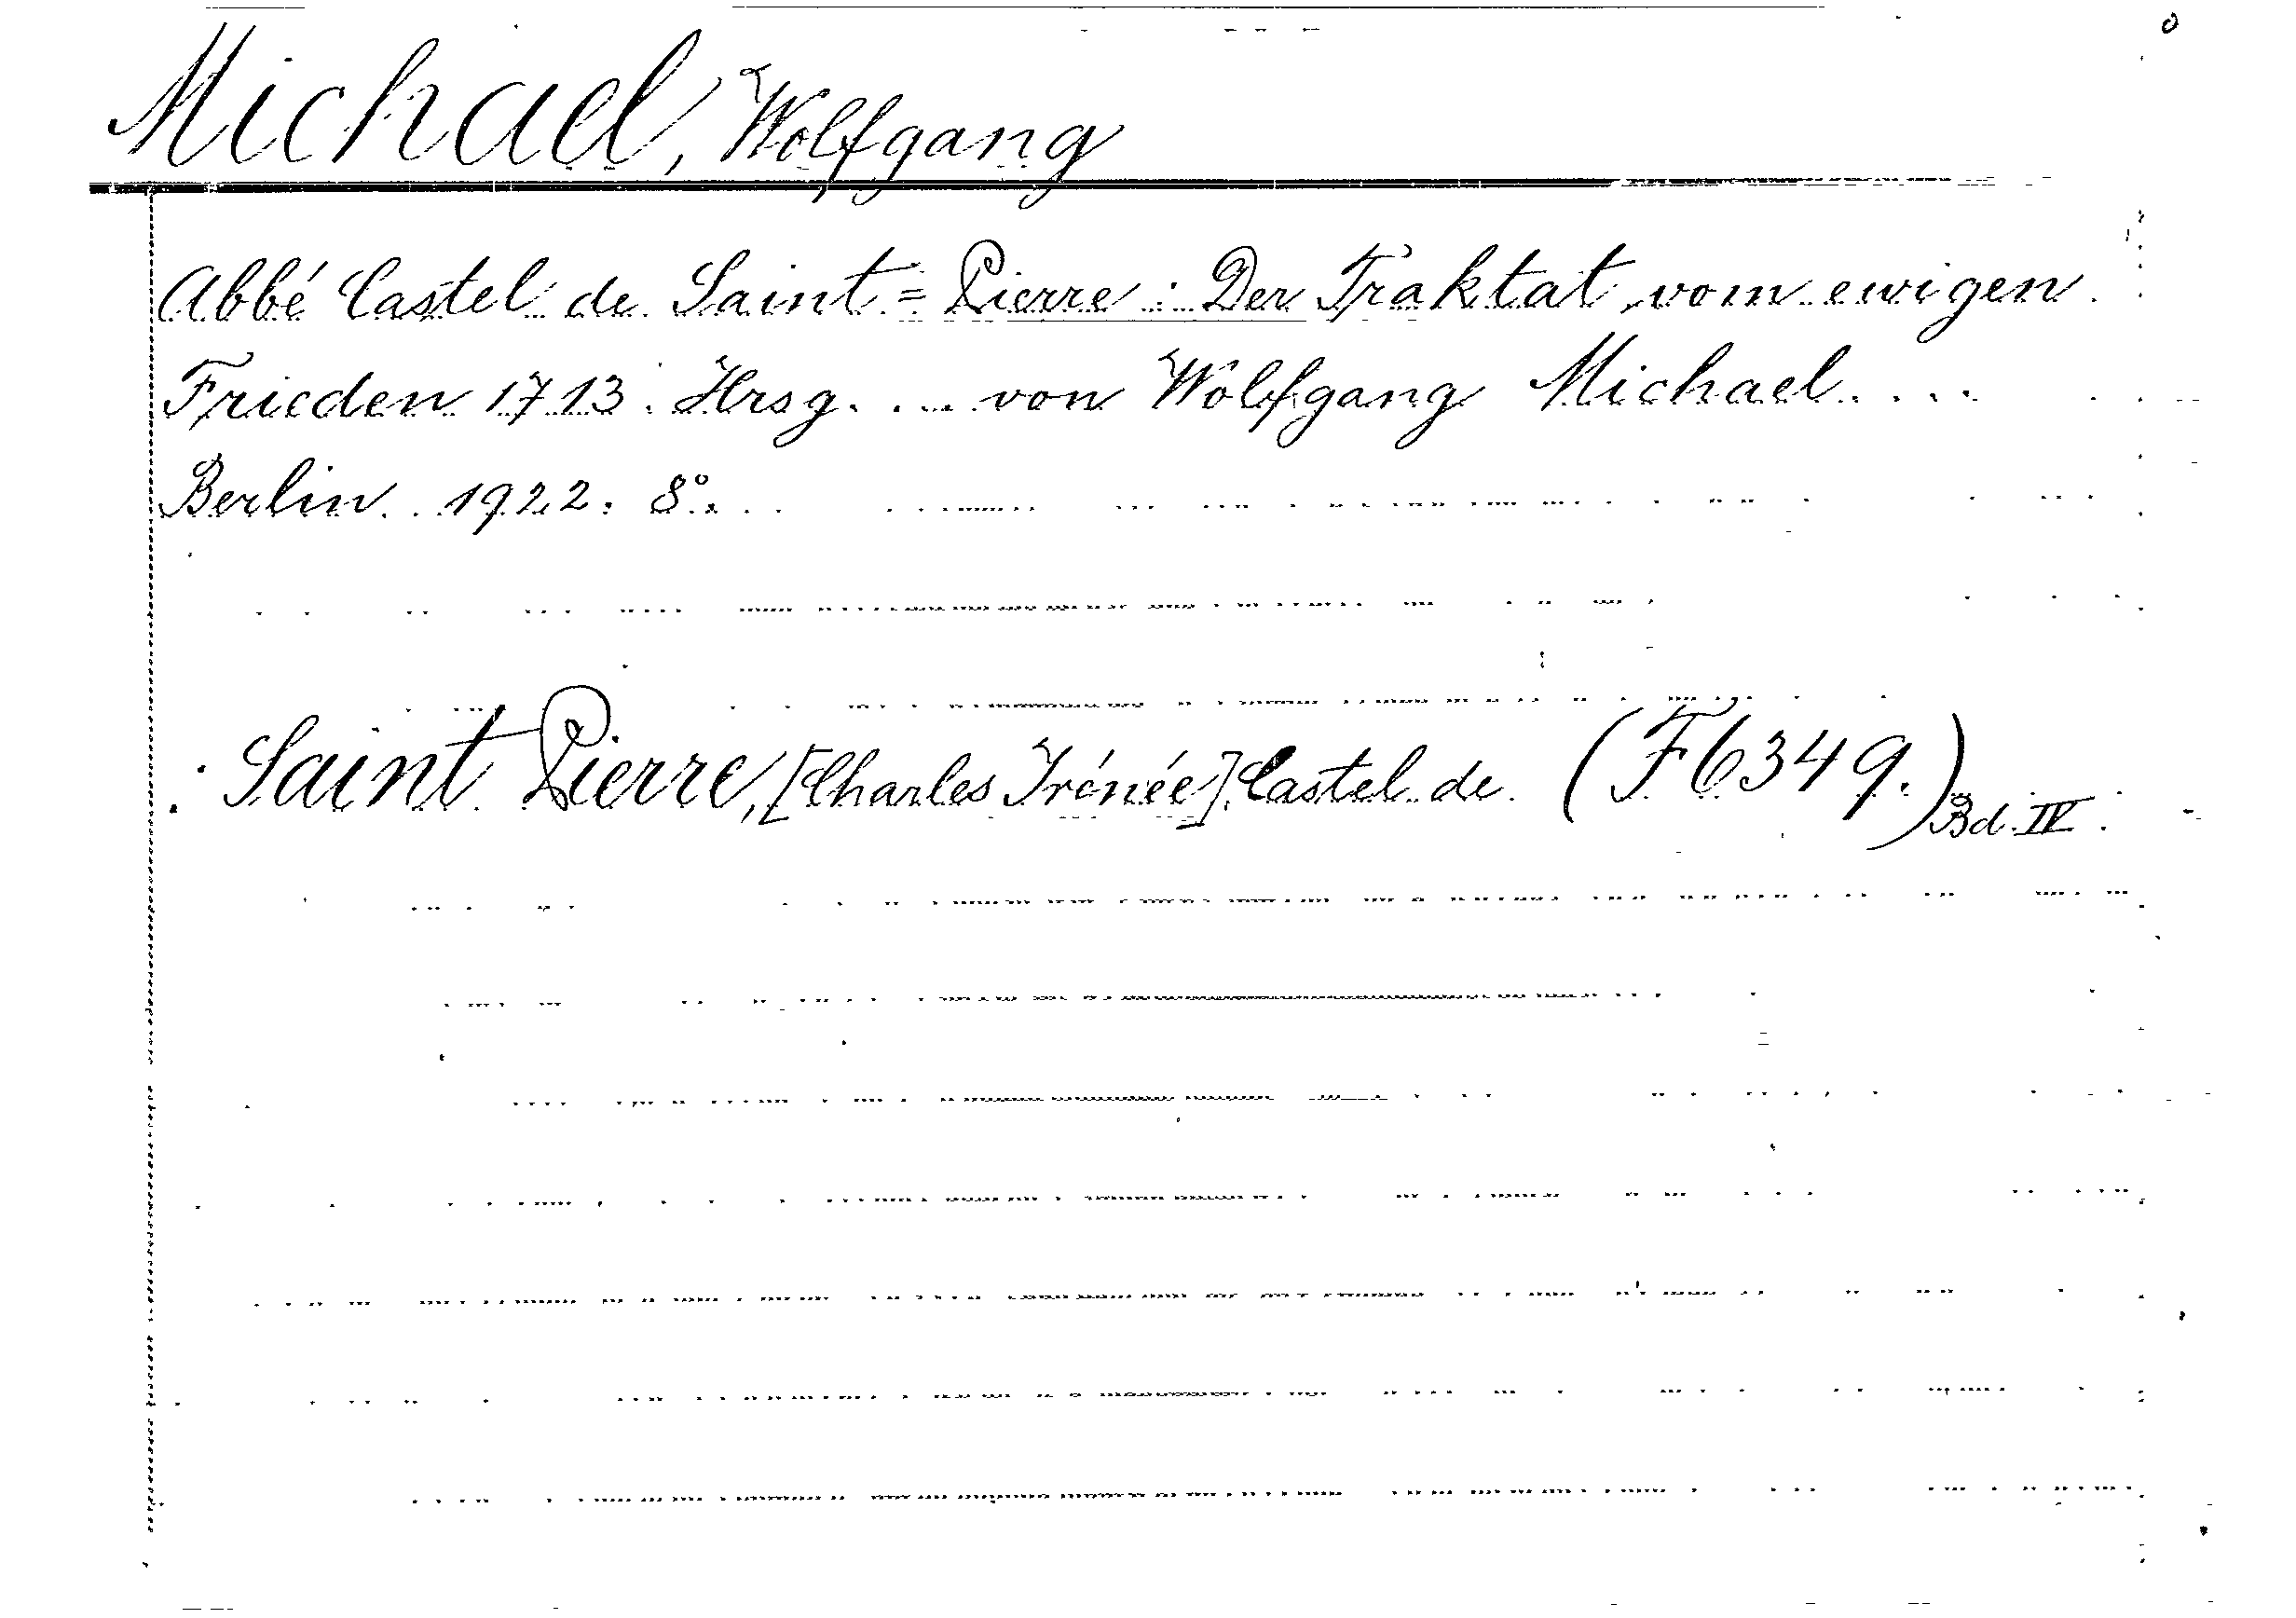 Michael, Wolfgang
Abbé Castel de Saint=Pierre: Der Traktat vom ewigen
Frieden 1713. Hrsg. ... von Wolfgang Michael ....
Berlin 1922. 8°.
: Saint Pierre, [Charles Irénée] Castel de (F6349.) Bd. IV.